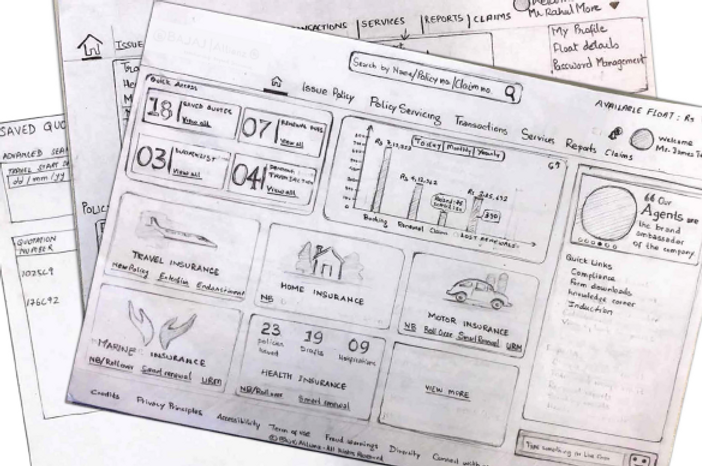 TRANSACTIONS | SERVICES | REPORTS | CLAIMS
Mr. Rahul More
My Profile
Float details
Password Management
ISSUE
SAVED QUO
TRAVEL START
dd / mm / yy
QUOTATION
NUMBER
POLIC
Search by Name/Policy no./Claim no.
AVAILABLE FLOAT : Rs
Welcome
Issue Policy Policy Servicing Transactions Services Reports Claims
Quick Access
18 SAVED QUOTES
View all
07 RENEWAL DUES
View all
03 WORKLIST
View all
04
TRANSACTION
View all
Today | Monthly | Yearly
Booking Renewal Claim LOST RENEWALS
TRAVEL INSURANCE
New Policy Extension Endorsement
HOME INSURANCE
NB
MOTOR INSURANCE
NB Roll Over Smart Renewal URM
MARINE INSURANCE
NB/Rollover Smart renewal URM
23 19 09
policies issued Drafts
HEALTH INSURANCE
NB/Rollover Smart renewal
VIEW MORE
Our
Agents are
the brand
ambassador
of the company.
Quick Links
Compliance
Form downloads
Knowledge corner
Induction
Credits Privacy Principles Accessibility Term of use Fraud warnings Diversity Connect with
All Rights Reserved